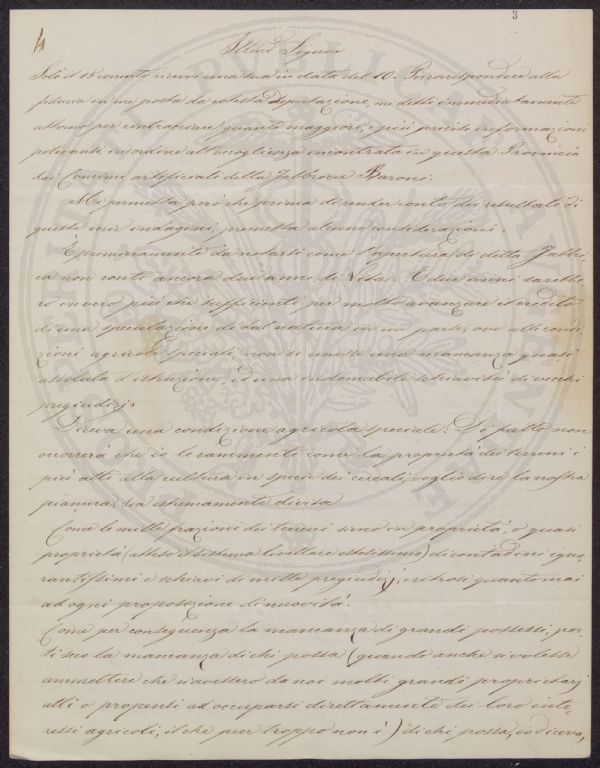 3
4
Illmo Signore
Solo il 15 corrente ricevei una sua in data del 10. Per corrispondere alla
fiducia in me posta da cotesta Deputazione, mi detti immediatamente
attorno per rintracciare quante maggiori, e più precise informazioni
potevansi in ordine all'accoglienza incontrata in questa Provincia
dai Concimi artificiali della Fabbrica Baroni.
Mi permetta però che prima di render conto dei resultati di
queste mie indagini, premetta alcune considerazioni.
E primieramente da notarsi come l'apertura di detta Fabbri-
ca non conti ancora due anni di vita. E due anni sarebbe-
ro invero più che sufficienti per molto avanzare il credito
di una speculazione di tal natura in un paese, ove alle condi-
zioni agricole speciali, non si unisse una mancanza quasi
assoluta d'istruzione, ed una indomabile schiavitù di vecchi
pregiudizj.
Diceva una condizione agricola speciale: Di fatto non
occorrerà che io le rammenti come la proprietà dei terreni i
più atti alla cultura in specie dei cereali, voglio dire la nostra
pianura, sia estremamente divisa
Come le mille frazioni dei terreni sieno in proprietà, o quasi
proprietà (atteso il sistema livellare estesissimo) di contadini igno-
rantissimi e schiavi di mille pregiudizj, e ritrosi quanto mai
ad ogni proposizione di novità.
Come per conseguenza la mancanza di grandi possessi, por-
ti seco la mancanza di chi possa (quando anche si volesse
ammettere che si avessero da noi molti grandi proprietarj
atti o propensi ad occuparsi direttamente dei loro inte-
ressi agricoli, il che pur troppo non è) di chi possa, io diceva,